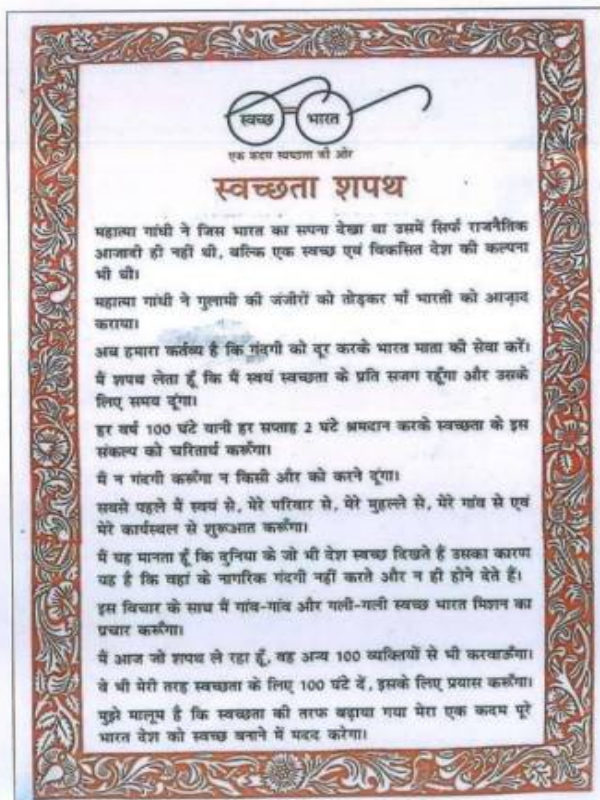 स्वच्छ भारत
एक कदम स्वच्छता की ओर
स्वच्छता शपथ
महात्मा गांधी ने जिस भारत का सपना देखा था उसमें सिर्फ राजनैतिक
आजादी ही नहीं थी, बल्कि एक स्वच्छ एवं विकसित देश की कल्पना
भी थी।
महात्मा गांधी ने गुलामी की जंजीरों को तोड़कर माँ भारती को आज़ाद
कराया।
अब हमारा कर्तव्य है कि गंदगी को दूर करके भारत माता की सेवा करें।
मैं शपथ लेता हूँ कि मैं स्वयं स्वच्छता के प्रति सजग रहूँगा और उसके
लिए समय दूंगा।
हर वर्ष 100 घंटे यानी हर सप्ताह 2 घंटे श्रमदान करके स्वच्छता के इस
संकल्प को चरितार्थ करूँगा।
मैं न गंदगी करूँगा न किसी और को करने दूंगा।
सबसे पहले मैं स्वयं से, मेरे परिवार से, मेरे मुहल्ले से, मेरे गांव से एवं
मेरे कार्यस्थल से शुरूआत करूँगा।
मैं यह मानता हूँ कि दुनिया के जो भी देश स्वच्छ दिखते हैं उसका कारण
यह है कि वहां के नागरिक गंदगी नहीं करते और न ही होने देते हैं।
इस विचार के साथ मैं गांव-गांव और गली-गली स्वच्छ भारत मिशन का
प्रचार करूँगा।
मैं आज जो शपथ ले रहा हूँ, वह अन्य 100 व्यक्तियों से भी करवाऊँगा।
वे भी मेरी तरह स्वच्छता के लिए 100 घंटे दें, इसके लिए प्रयास करूँगा।
मुझे मालूम है कि स्वच्छता की तरफ बढ़ाया गया मेरा एक कदम पूरे
भारत देश को स्वच्छ बनाने में मदद करेगा।